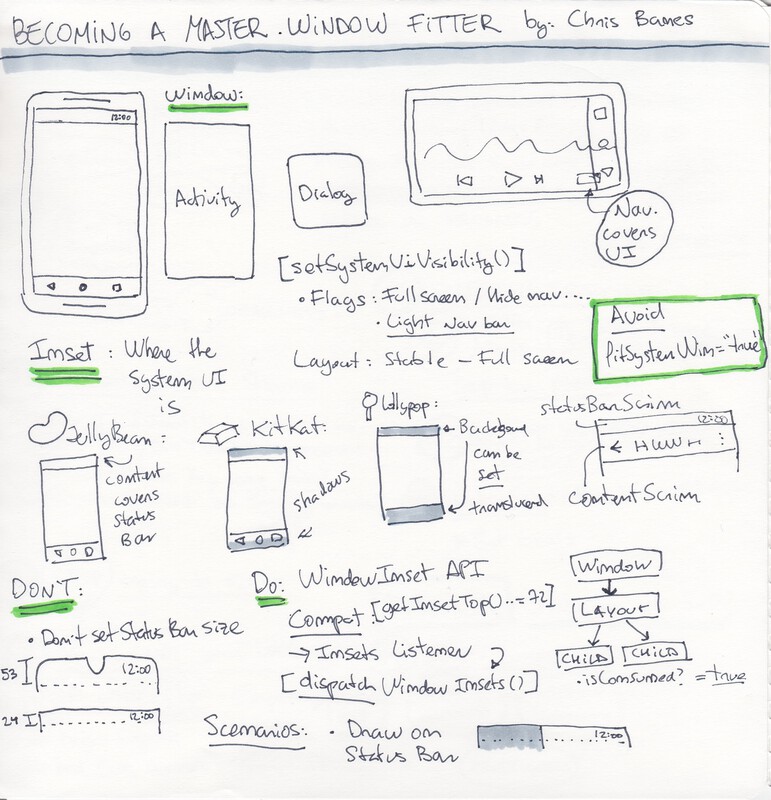 BECOMING A MASTER. WINDOW FITTER by: Chris Banes
Window:
12:00
Activity
Dialog
Nav.
covers
UI
[setSystemUiVisibility()]
• Flags: Full screen / Hide nav....
• Light Nav bar
Layout: Stable - Full screen
Avoid
fitSystemWin="true"
Inset: Where the
System UI
is
JellyBean:
content
covers
status
Bar
KitKat:
shadows
Lollypop:
Background
can be
set
translucend
statusBarScrim
12:00
← HWWH ⋮
contentScrim
DON'T:
• Don't set Status Bar size
53
12:00
24
12:00
Do: WindowInset API
Compat: [getInsetTop()..=72]
→ Insets Listener
[dispatch Window Insets()]
Window
Layout
CHILD
CHILD
• isConsumed? = true
Scenarios: • Draw on
Status Bar
12:00